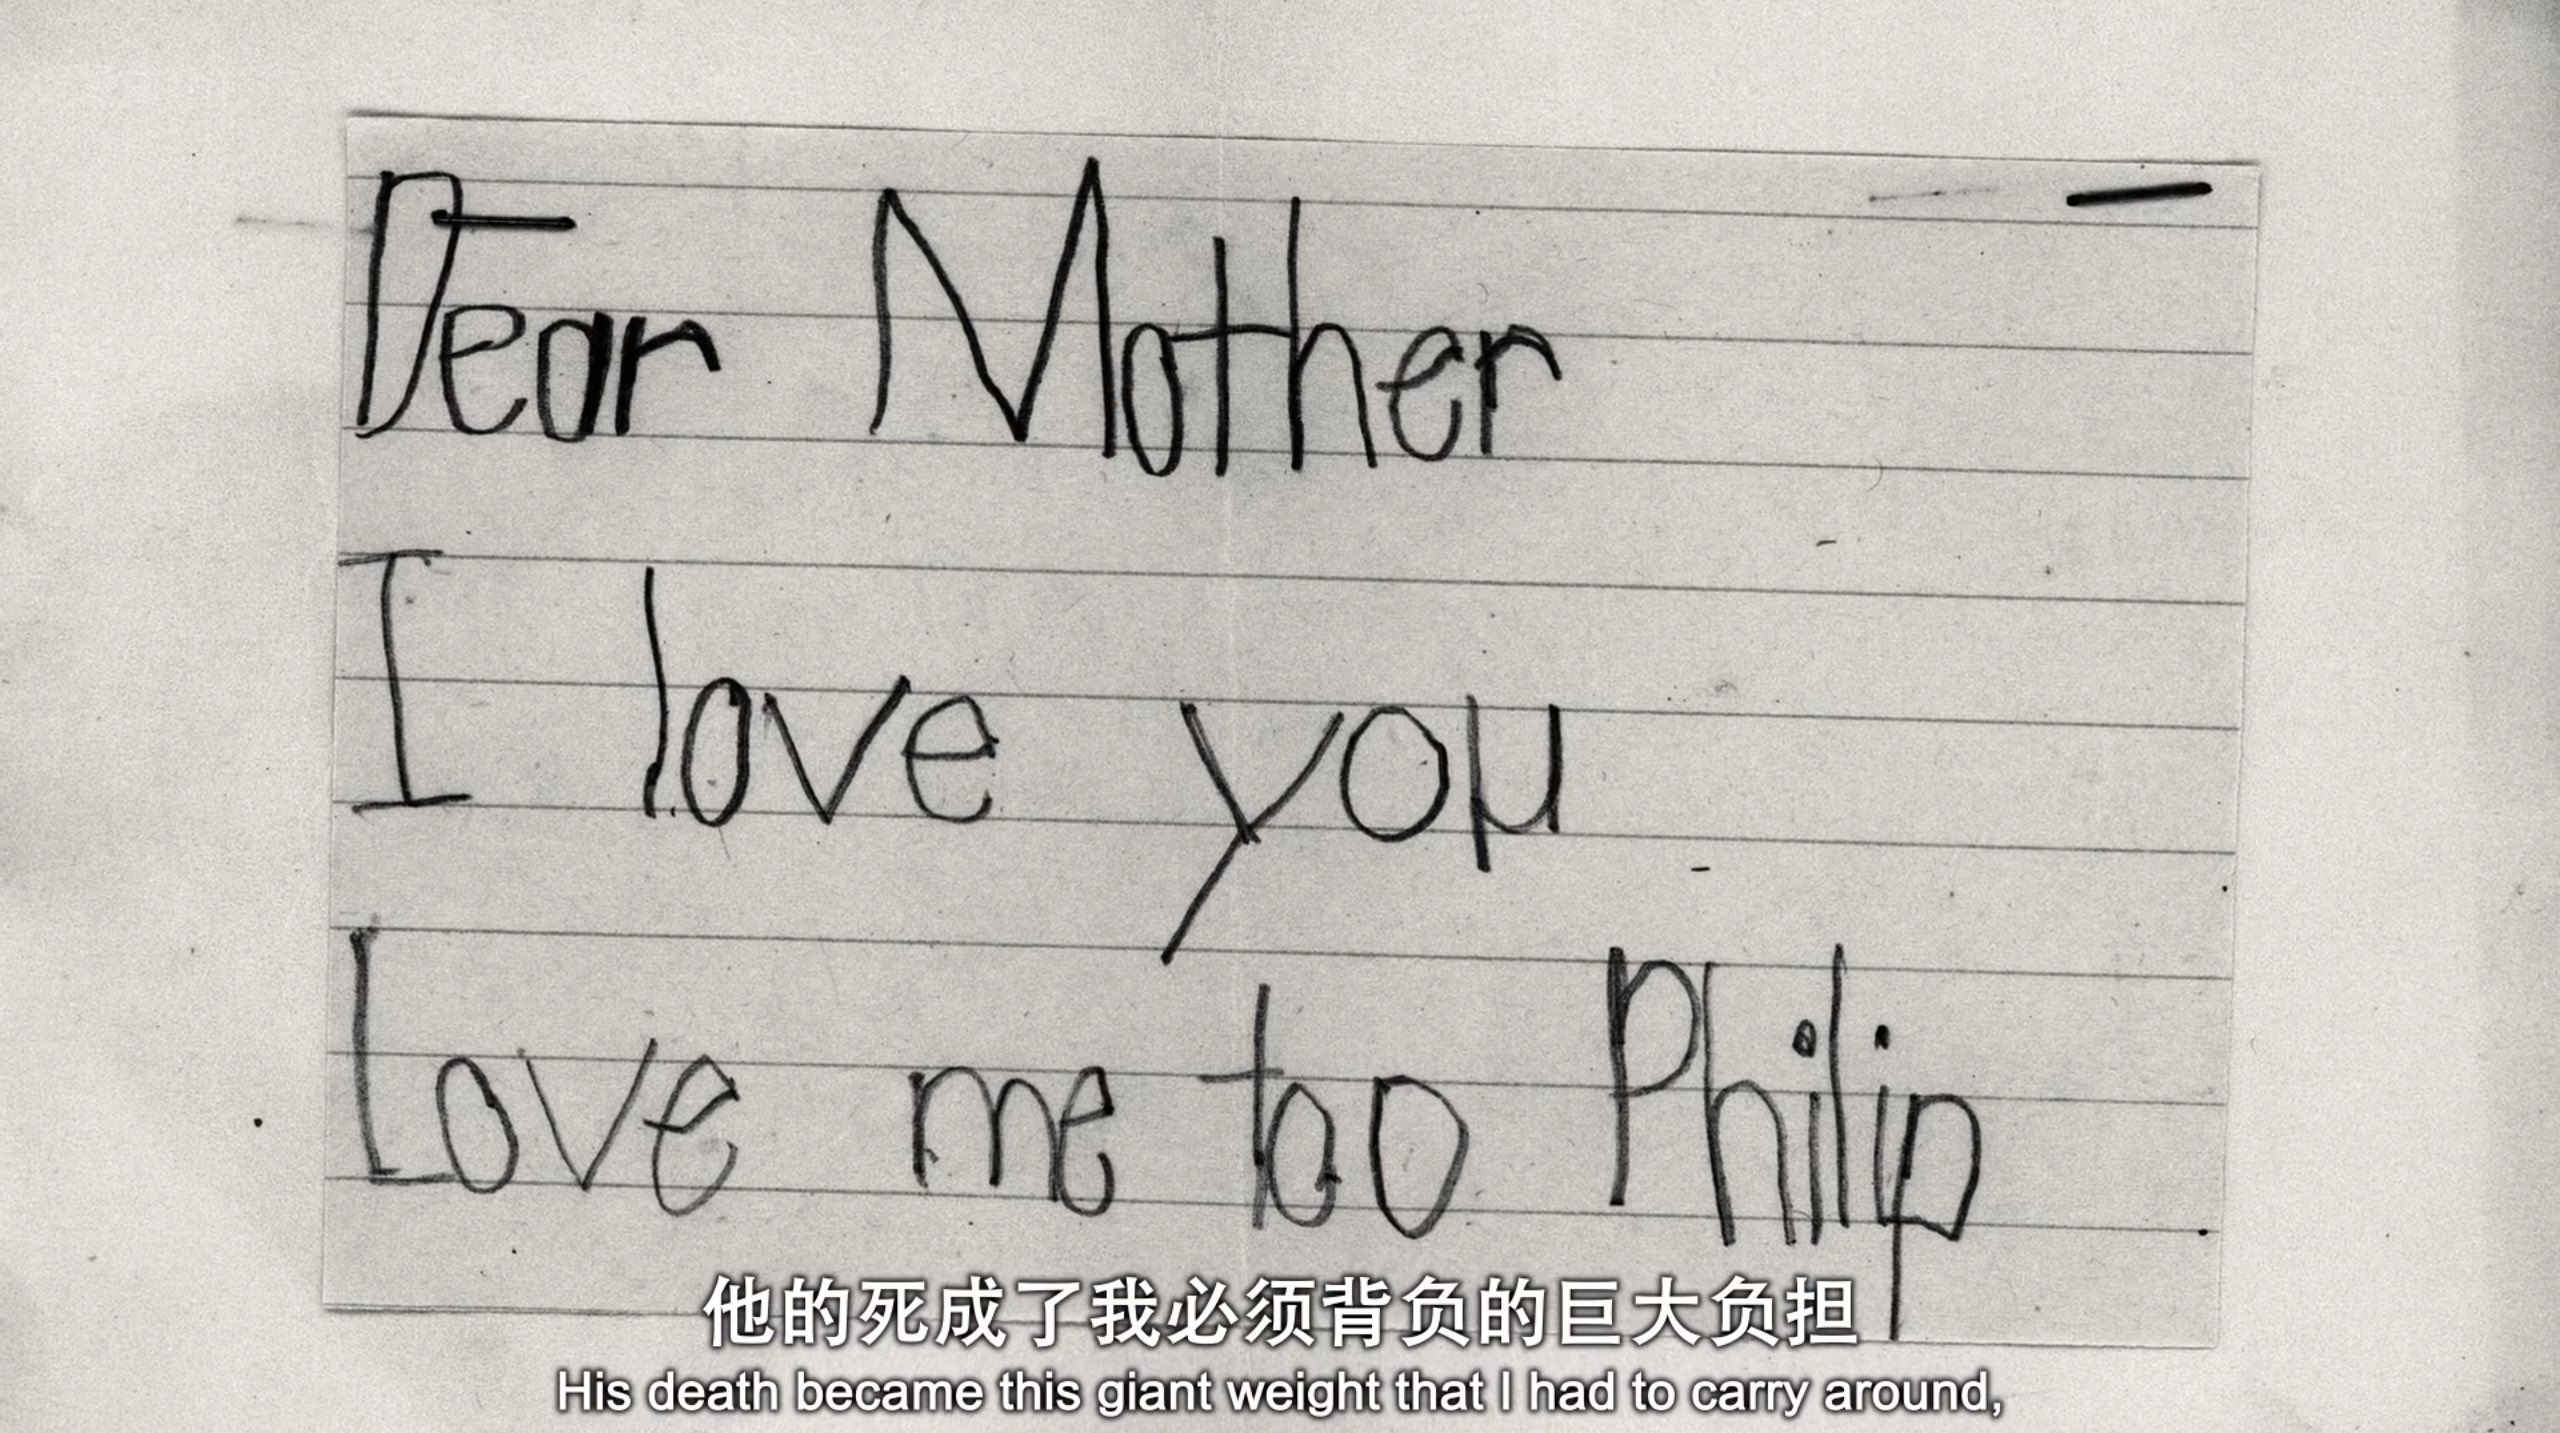 Dear Mother
I love you
Love me too Philip
他的死成了我必须背负的巨大负担
His death became this giant weight that I had to carry around,